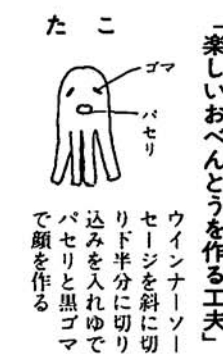 「楽しいおべんとうを作る工夫」
たこ
ゴマ
パセリ
ウインナーソー
セージを斜に切
り下半分に切り
込みを入れゆで
パセリと黒ゴマ
で顔を作る